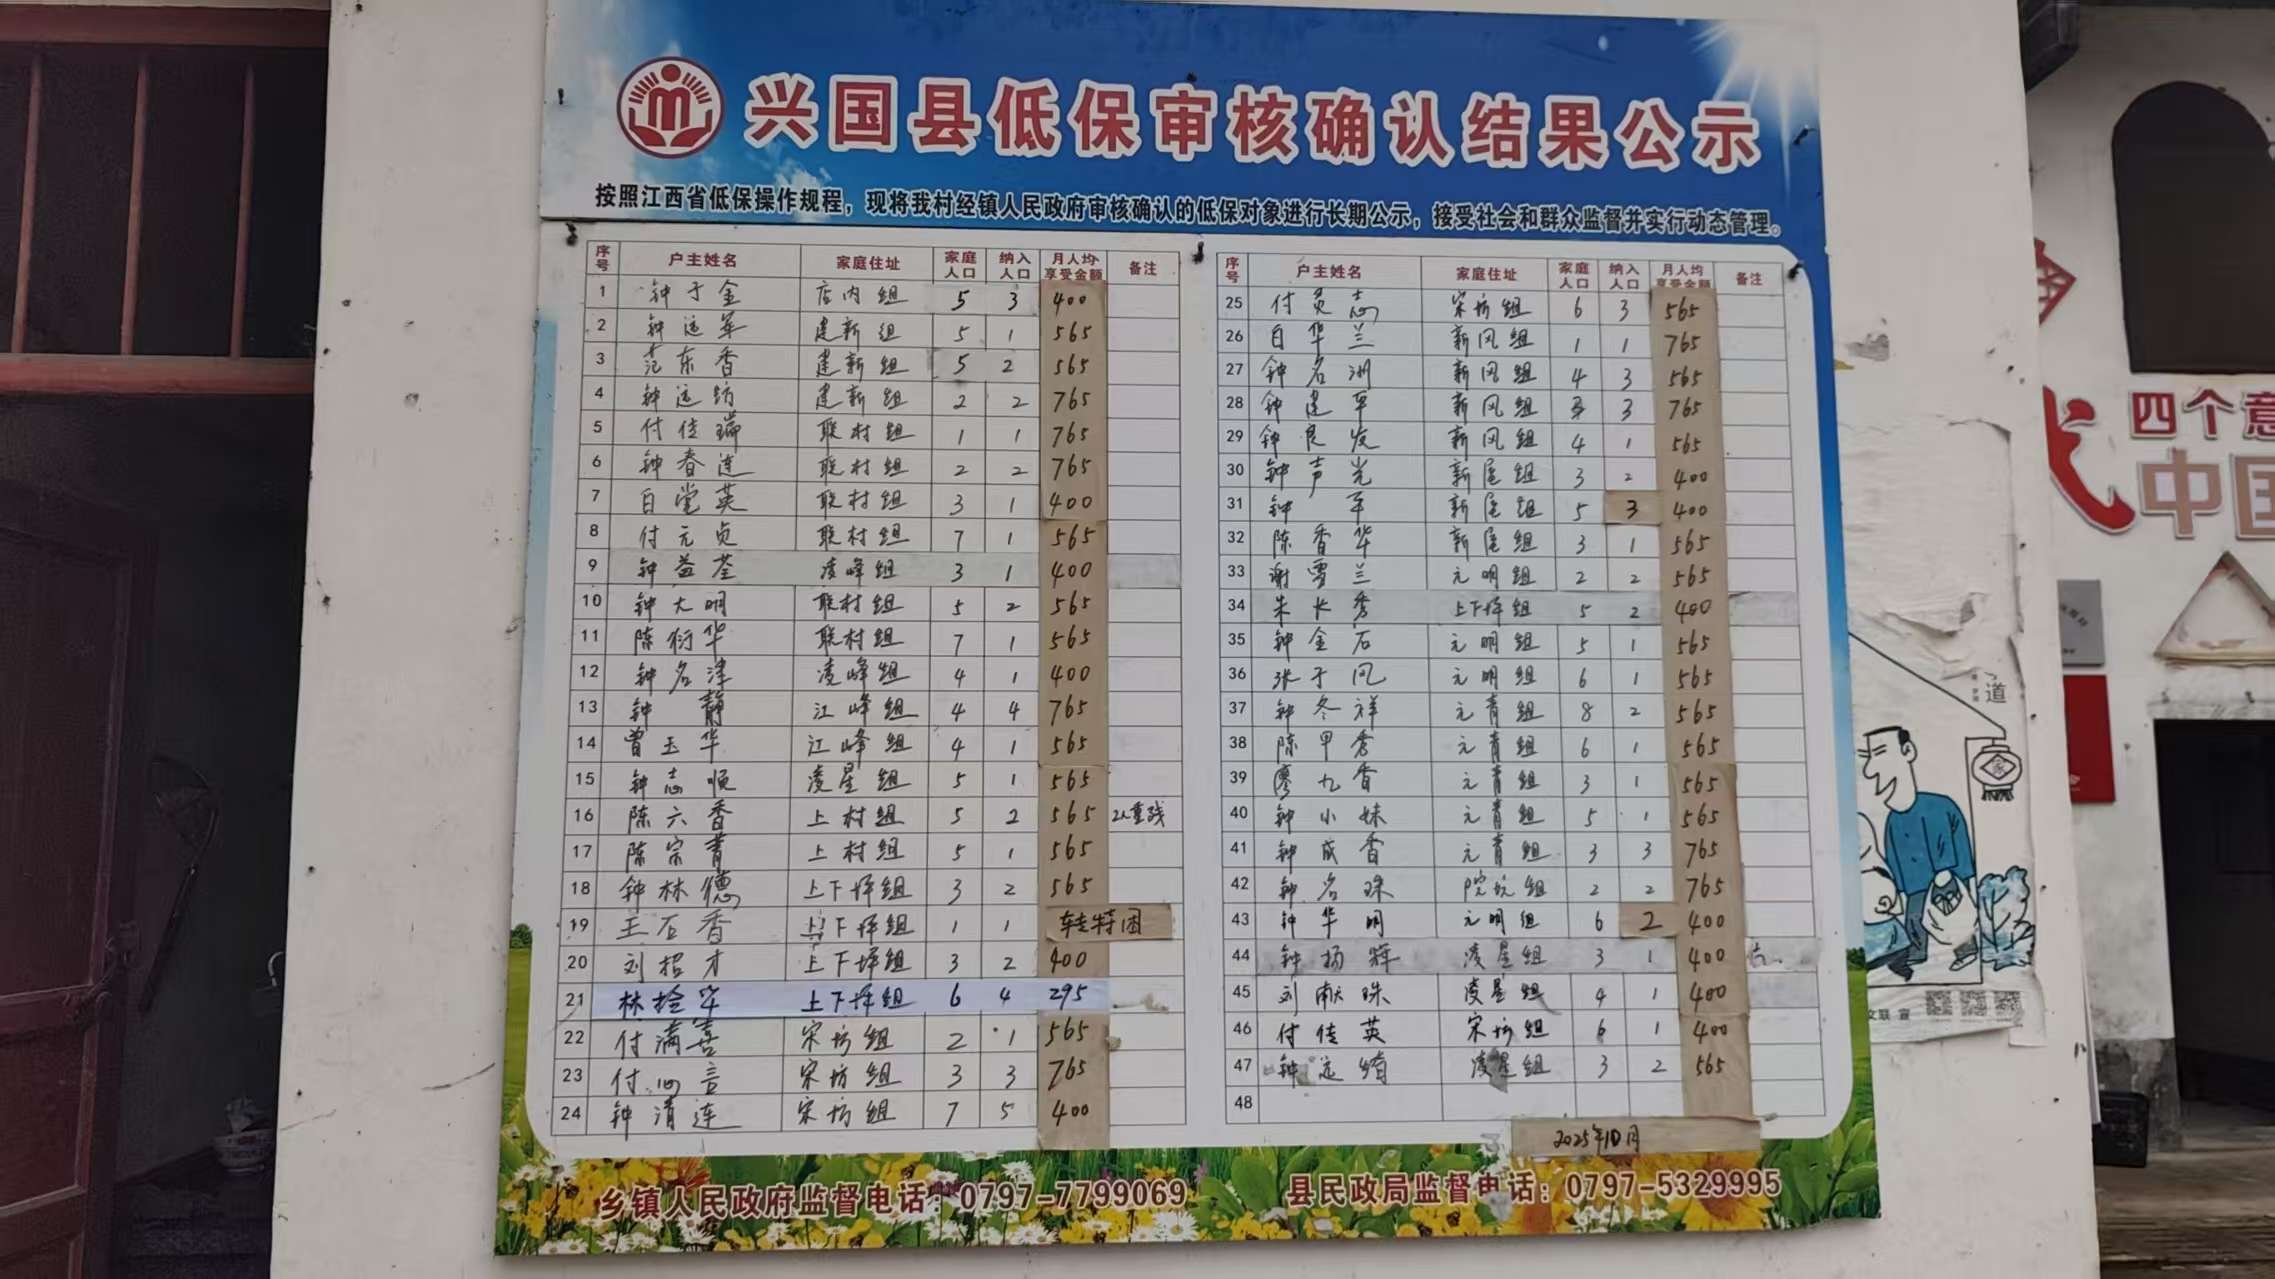 兴国县低保审核确认结果公示
按照江西省低保操作规程，现将我村经镇人民政府审核确认的低保对象进行长期公示，接受社会和群众监督并实行动态管理。
序号 户主姓名 家庭住址 家庭人口 纳入人口 月人均享受金额 备注
1 钟于金 店内组 5 3 400
2 钟运军 建新组 5 1 565
3 范东香 建新组 5 2 565
4 钟运坊 建新组 2 2 765
5 付佳瑞 联村组 1 1 765
6 钟春连 联村组 2 2 765
7 白堂英 联村组 3 1 400
8 付元贞 联村组 7 1 565
9 钟益荃 凌峰组 3 1 400
10 钟大明 联村组 5 2 565
11 陈衍华 联村组 7 1 565
12 钟名泽 凌峰组 4 1 400
13 钟静 江峰组 4 4 765
14 曾玉华 江峰组 4 1 565
15 钟志顺 凌星组 5 1 565
16 陈六香 上村组 5 2 565 2人重残
17 陈宗菁 上村组 5 1 565
18 钟林德 上下坪组 3 2 565
19 王石香 上下坪组 1 1 转特困
20 刘招才 上下坪组 3 2 400
21 林 上下坪组 6 4 295
22 付满喜 宋坊组 2 1 565
23 付心言 宋坊组 3 3 765
24 钟清连 宋坊组 7 5 400
序号 户主姓名 家庭住址 家庭人口 纳入人口 月人均享受金额 备注
25 付员志 宋坊组 6 3 565
26 白华兰 新风组 1 1 765
27 钟名洲 新风组 4 3 565
28 钟建平 新风组 3 3 765
29 钟良发 新风组 4 1 565
30 钟声光 新屋组 3 2 400
31 钟军 新屋组 5 3 400
32 陈香华 新屋组 3 1 565
33 谢雪兰 元明组 2 2 565
34 朱长秀 上下坪组 5 2 400
35 钟金石 元明组 5 1 565
36 张于凤 元明组 6 1 565
37 钟冬祥 元青组 8 2 565
38 陈甲秀 元青组 6 1 565
39 廖九香 元青组 3 1 565
40 钟小妹 元青组 5 1 565
41 钟成香 元青组 3 3 765
42 钟名珠 院坑组 2 2 765
43 钟华明 元明组 6 2 400
44 钟扬辉 凌星组 3 1 400
45 刘献珠 凌星组 4 1 400
46 付传英 宋坊组 6 1 400
47 钟运 凌星组 3 2 565
48
2025年10月
乡镇人民政府监督电话：0797-7799069
县民政局监督电话：0797-5329995
四个意
中国
道
家
文联 宣